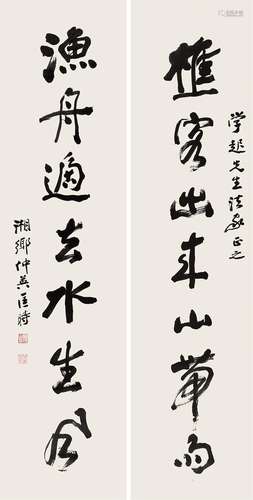 学趋先生法家正之
樵客出来山带雨
渔舟过去水生风
湘乡仲英匡时